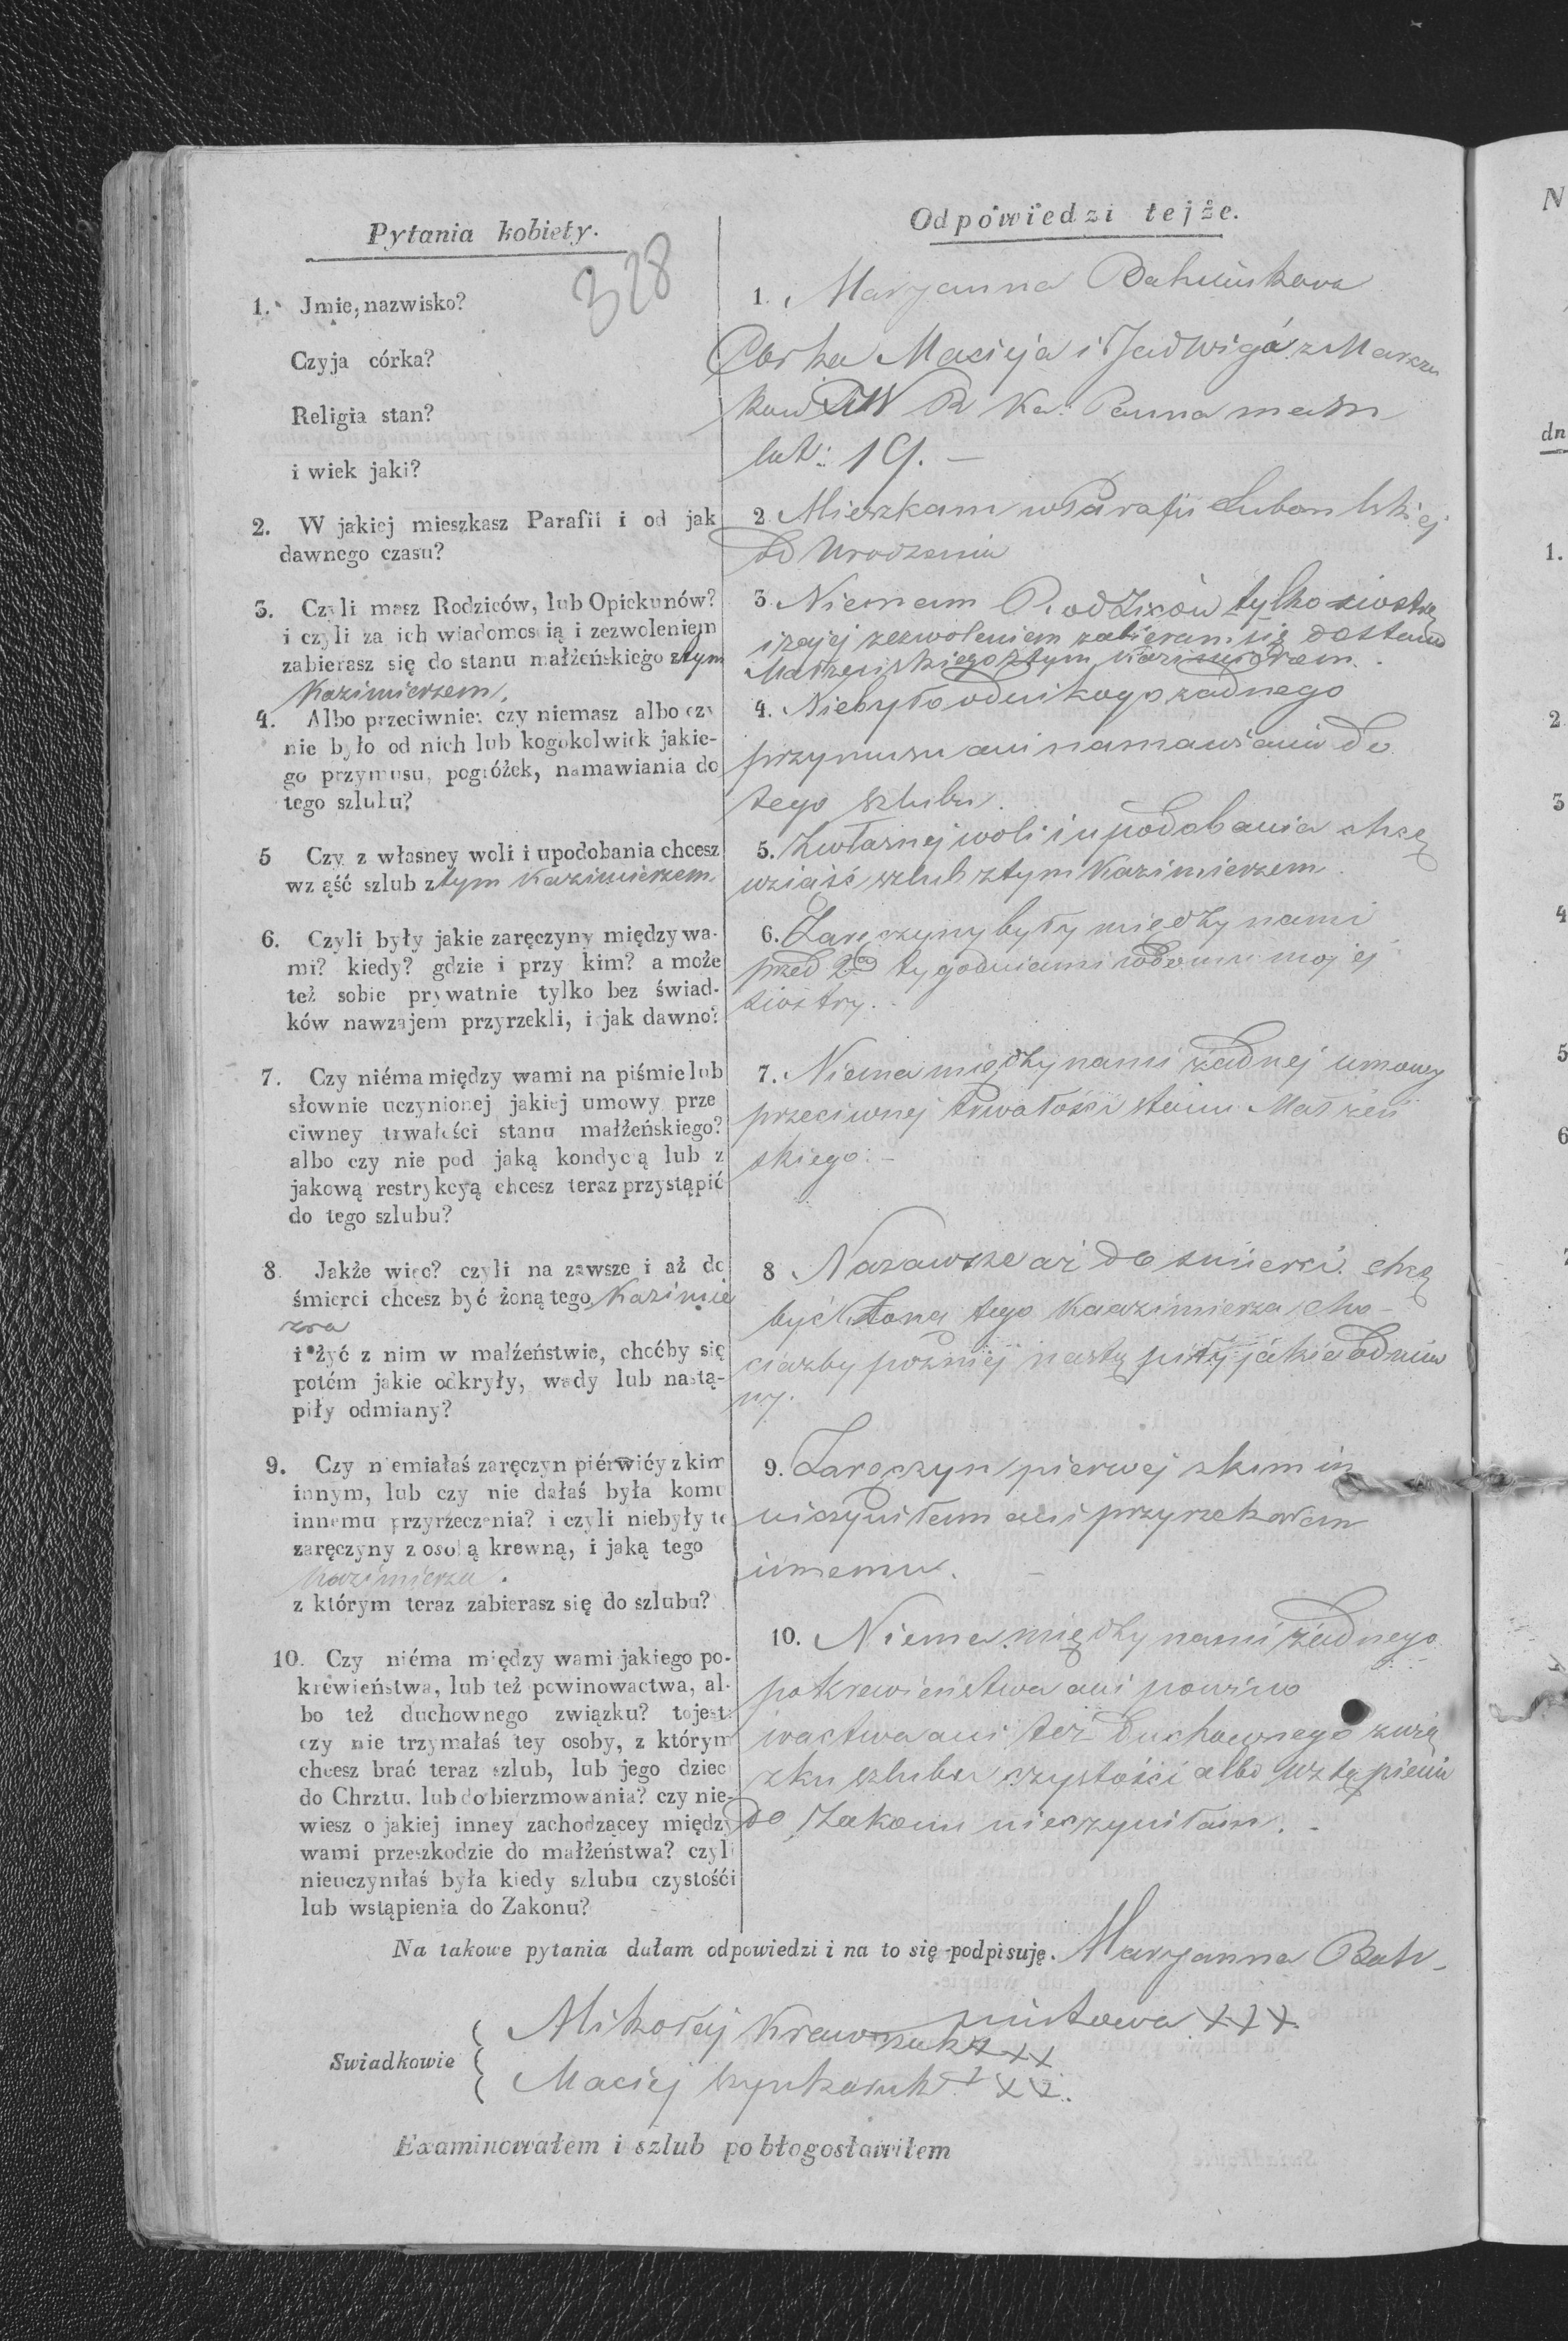 Pytania kobiety.
328
1. Jmie, nazwisko?
Czyja córka?
Religia stan?
i wiek jaki?
2. W jakiej mieszkasz Parafii i od jak
dawnego czasu?
3. Czyli masz Rodziców, lub Opiekunów?
i czyli za ich wiadomoscią i zezwoleniem
zabierasz się do stanu małżeńskiego z tym
Kazimierzem,
4. Albo przeciwnie: czy niemasz albo czy
nie było od nich lub kogokolwiek jakie-
go przymusu, pogróżek, namawiania do
tego szlubu?
5 Czy z własney woli i upodobania chcesz
wziąść szlub z tym Kazimierzem.
6. Czyli były jakie zaręczyny między wa-
mi? kiedy? gdzie i przy kim? a może
też sobie prywatnie tylko bez świad-
ków nawzajem przyrzekli, i jak dawno?
7. Czy niéma między wami na piśmie lub
słownie uczynionej jakiej umowy prze
ciwney trwałości stanu małżeńskiego?
albo czy nie pod jaką kondycią lub z
jakową restrykcyą chcesz teraz przystąpić
do tego szlubu?
8. Jakże więc? czyli na zawsze i aż do
śmierci chcesz być żoną tego Kazimie
rza
i żyć z nim w małżeństwie, choćby się
potém jakie odkryły, wady lub nastą-
piły odmiany?
9. Czy niemiałaś zaręczyn piérwićy z kim
innym, lub czy nie dałaś była komu
innemu przyrzeczenia? i czyli niebyły te
zaręczyny z osobą krewną, i jaką tego
Kazimierza.
z którym teraz zabierasz się do szlubu?
10. Czy niéma między wami jakiego po-
krewieństwa, lub też powinowactwa, al-
bo też duchownego związku? tojest:
czy nie trzymałaś tey osoby, z którym
chcesz brać teraz szlub, lub jego dzieci
do Chrztu, lub do bierzmowania? czy nie-
wiesz o jakiej inney zachodzącey między
wami przeszkodzie do małżeństwa? czyli
nieuczyniłaś była kiedy szlubu czystości
lub wstąpienia do Zakonu?
Odpowiedzi tejże.
1. Maryanna
Corka Macieja i Jadwigi z
R Ka: Panna mam
lat: 19. –
2 Mieszkam w Parafii
od Urodzenia
3. Niemam Rodziców tylko siostrę
i zajej zezwoleniem zabieram się do stanu
Małzenskiego z tym Kazimierzem.
4. Niebyło od nikogo zadnego
przymusu ani namawiania do
tego szlubu.
5. Zwłasnej woli i upodobania chcę
wziąść szlub z tym Kazimierzem
6. Zaręczyny były między nami
przed 2 tygodniami w Domu mojej
siostry. -
7. Niema między nami żadnej umowy
przeciwnej trwałości stanu Małżeń
skiego. –
8 Nazawsze aż do smierci chcę
być Żoną tego Kazimierza, cho-
ciazby pozniej nastąpiły jakie odmia
ny.
9. Zaręczyn pierwej z kim in
ani przyrzekałam
innemu. –
10. Niema między nami żadnego
pokrewieństwa ani powino
wactwa ani też Duchownego zwią
zku szlubu czystości albo wstąpienia
do Zakonu nieczyniłam. -
Na takowe pytania dałam odpowiedzi i na to się podpisuję. Maryanna
XXX
Swiadkowie
Mikołaj Krawczuk XXX
Maciej XXX.
Examinowałem i szlub pobłogosławiłem
N
dn
1.
2
3
4
5
6